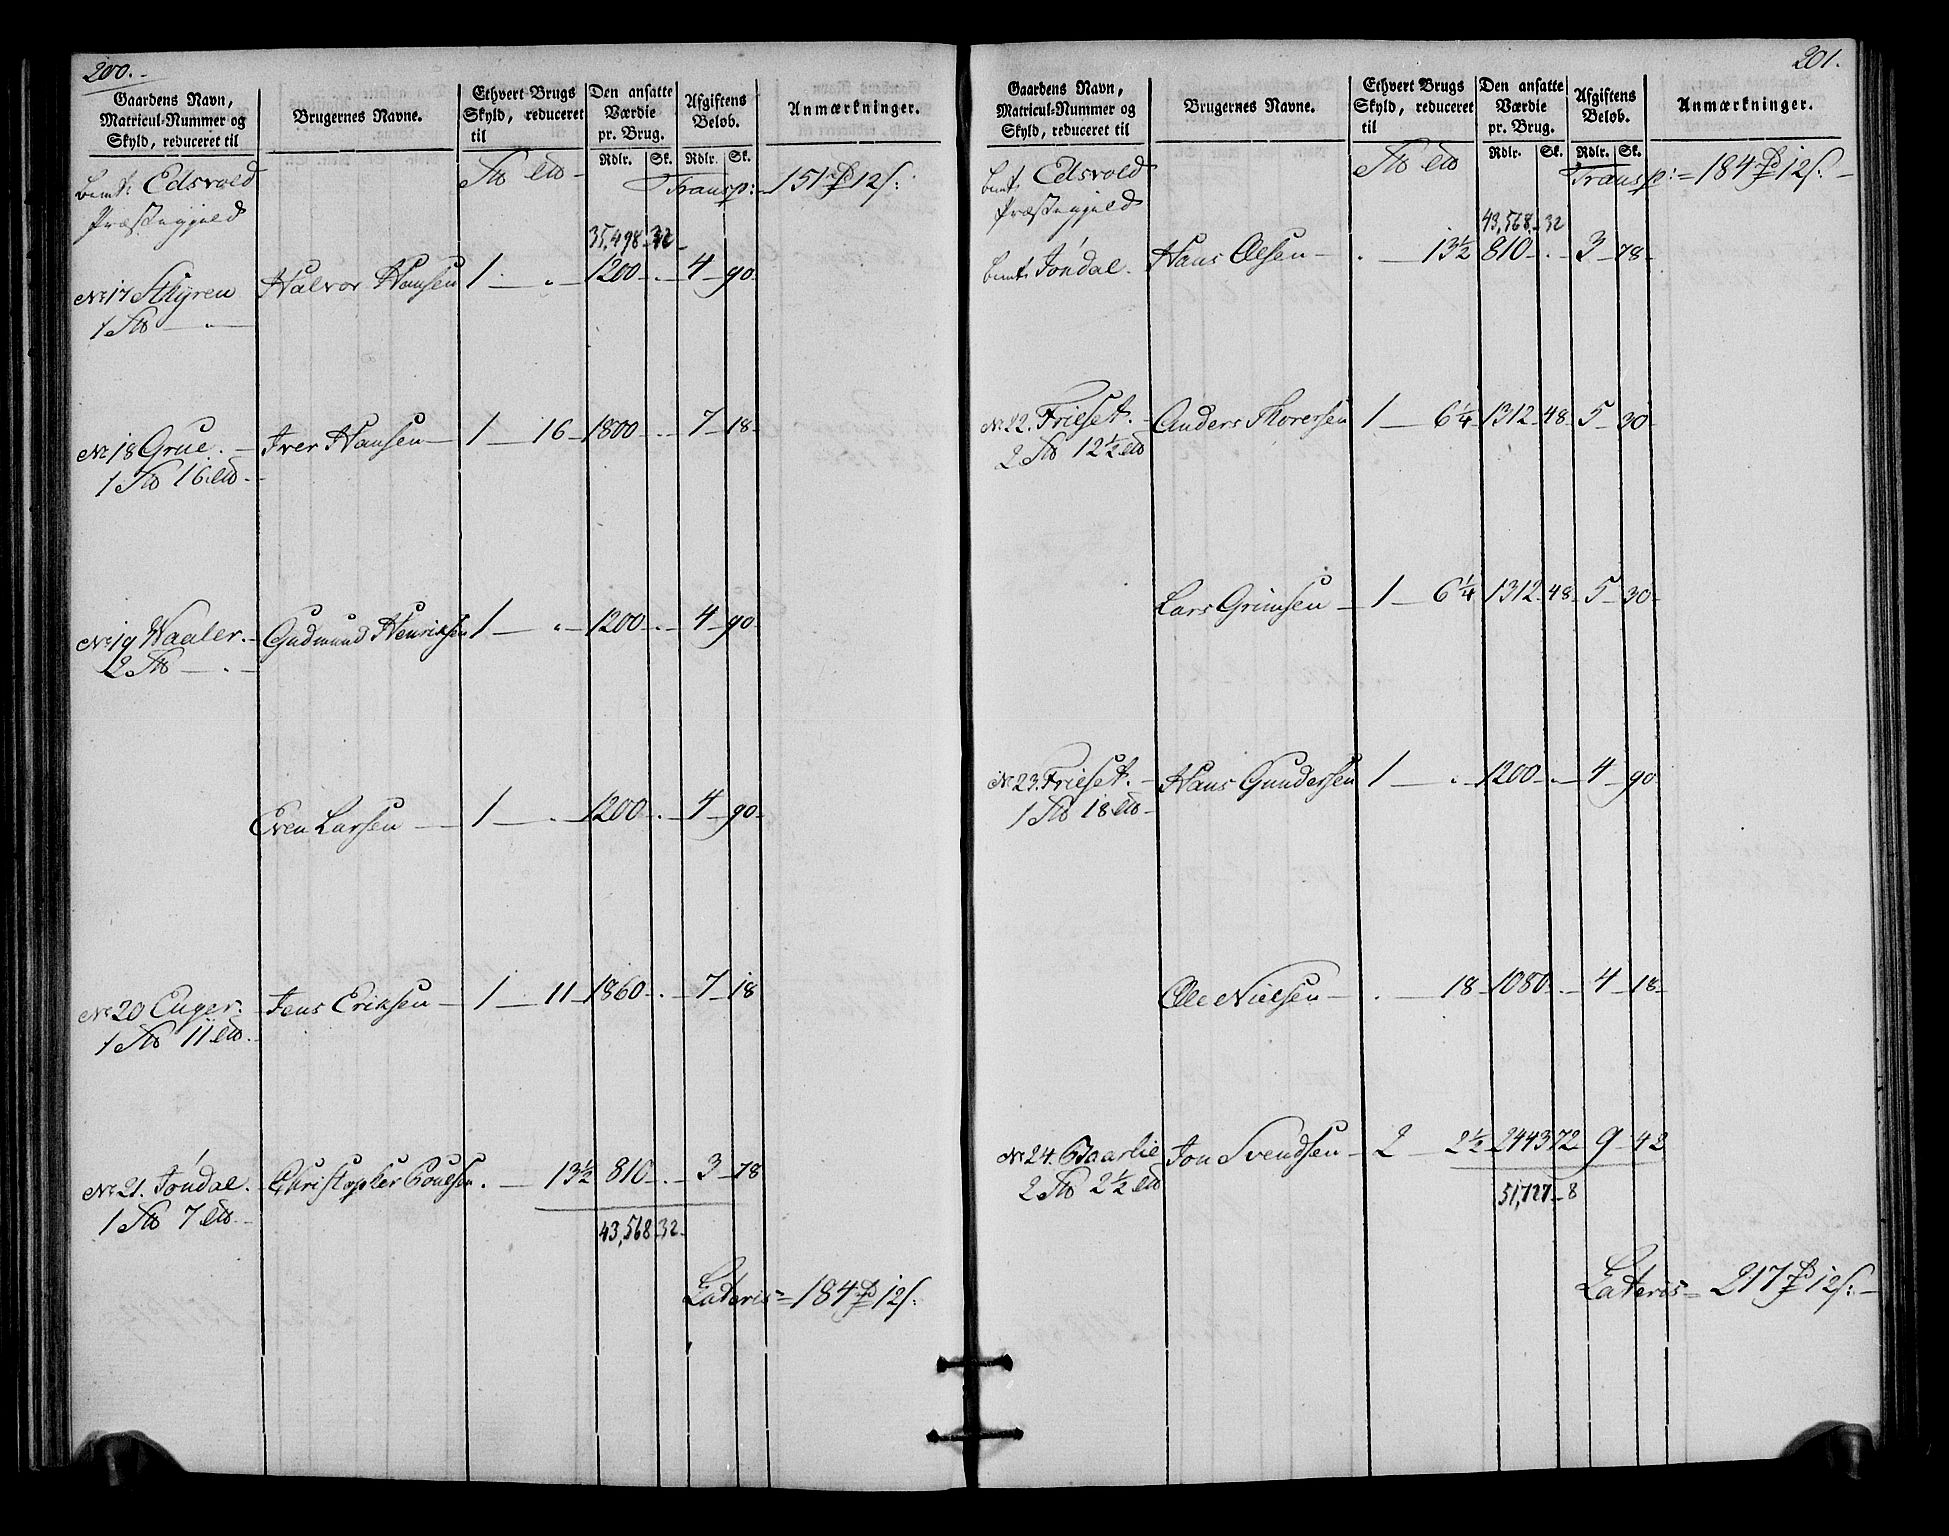 200.
Gaardens Navn, Matricul-Nummer og Skyld, reduceret til
Brugernes Navne.
Ethvert Brugs Skyld, reduceret til
Den ansatte Værdie pr. Brug.
Afgiftens Beløb.
Anmærkninger.
Rdlr. Sk. Rdlr. Sk.
bem.t Edsvold Transp: 151 12
Præstegjeld
35,498 32
No 17 Styren Halvor Hansen 1 - 1200 - 4 90
1
No 18 Grue. Iver Hansen 1 16 1800 - 7 18
1 16
No 19 Waaler. Gudmund Henriksen 1 - 1200 - 4 90
2
Even Larsen 1 - 1200 - 4 90
No 20 Enger: Jens Eriksen 1 11 1860 - 7 18
1 11
No 21. Jøndal. Christopher Poulsen . 13½ 810 - 3 78
1 7
43,568 32
Lateris = 184 12
201.
Gaardens Navn, Matricul-Nummer og Skyld, reduceret til
Brugernes Navne.
Ethvert Brugs Skyld, reduceret til
Den ansatte Værdie pr. Brug.
Afgiftens Beløb.
Anmærkninger.
Rdlr. Sk. Rdlr. Sk.
bem.t Edsvold Transp: = 184 12
Præstegjeld
43,568 32
bem.t Jøndal. Hans Olsen . 13½ 810 - 3 78
No 22. Frilset. Anders Thoresen 1 6¼ 1312 48 5 30
2 12½
Lars Grimsen 1 6¼ 1312 48 5 30
No 23. Frilset. Hans Gundersen 1 - 1200 - 4 90
1 18
Ole Nielsen . 18 1080 - 4 18
No 24. Baarlie Jon Svendsen 2 2½ 2443 72 9 42
2 2½
51,727 8
Lateris = 217 12